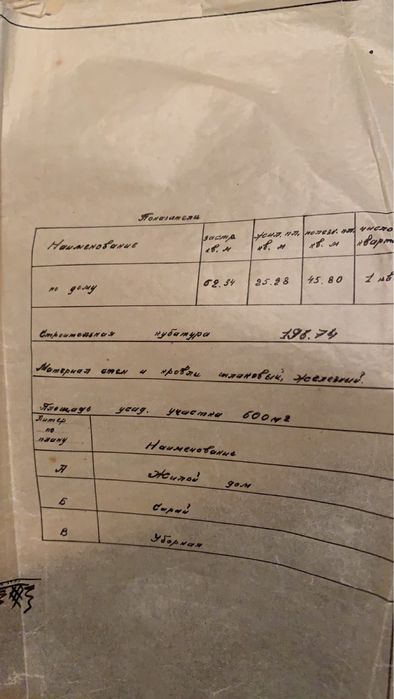 Показатели
Наименование застр. кв. м жил. пл. кв. м полезн. пл. кв. м число кварт
по дому 62.34 25.28 45.80 1 кв
Строительная кубатура 198.74
Материал стен и кровли шлаковый, железный.
Площадь усад. участка 600 м2
Литер по плану Наименование
А Жилой дом
Б Сарай
В Уборная